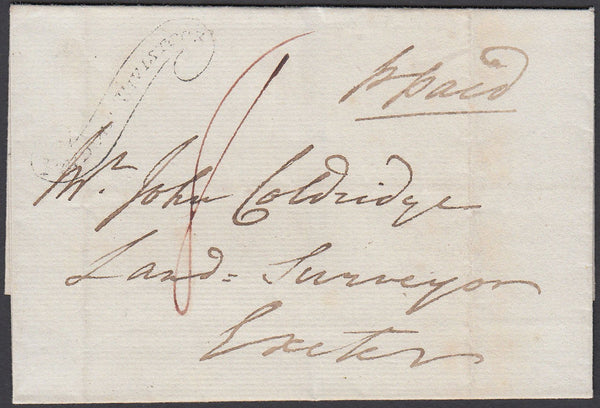 p paid
Mr. John Coldridge
Land = Surveyor
Exeter